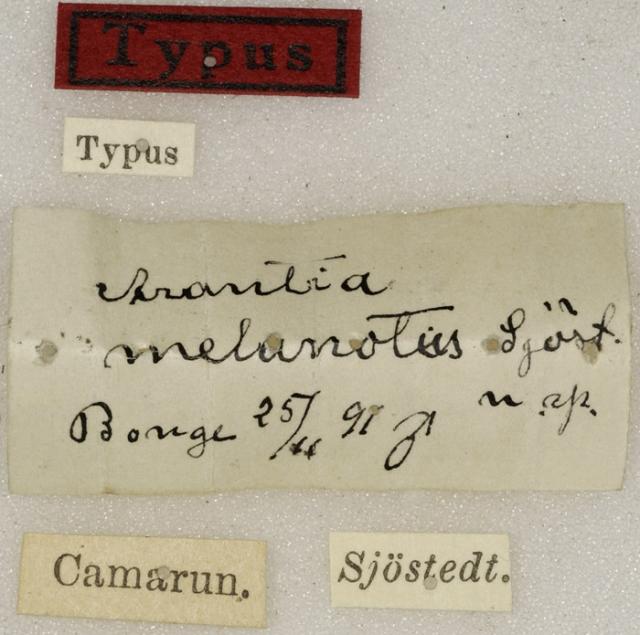 Typus
Typus
Arantia
melanotus Sjöst.
n. sp.
Bonge 25/ 91
Camarun.
Sjöstedt.